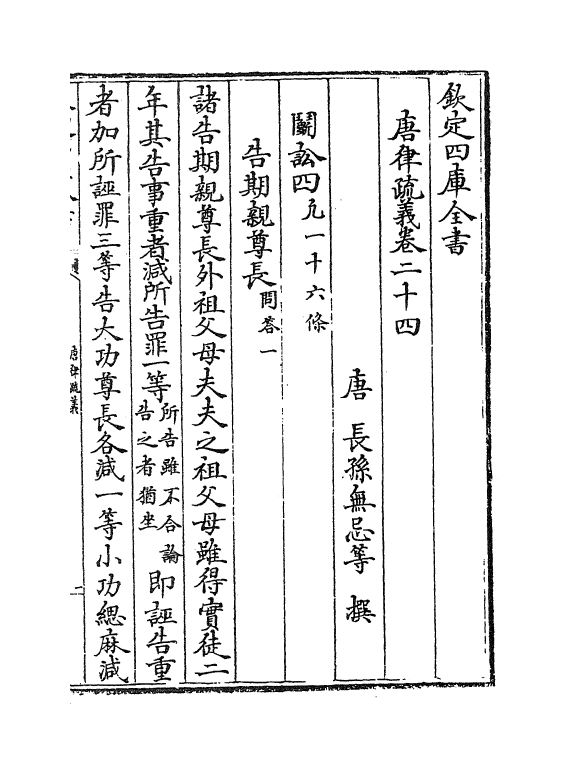 欽定四庫全書
唐律疏義卷二十四
唐 長孫無忌等 撰
鬭訟四凡一十六條
告期親尊長問答一
諸告期親尊長外祖父母夫夫之祖父母雖得實徒二
年其告事重者減所告罪一等所告雖不合論告之者猶坐即誣告重
者加所誣罪三等告大功尊長各減一等小功緦麻減
唐律疏義